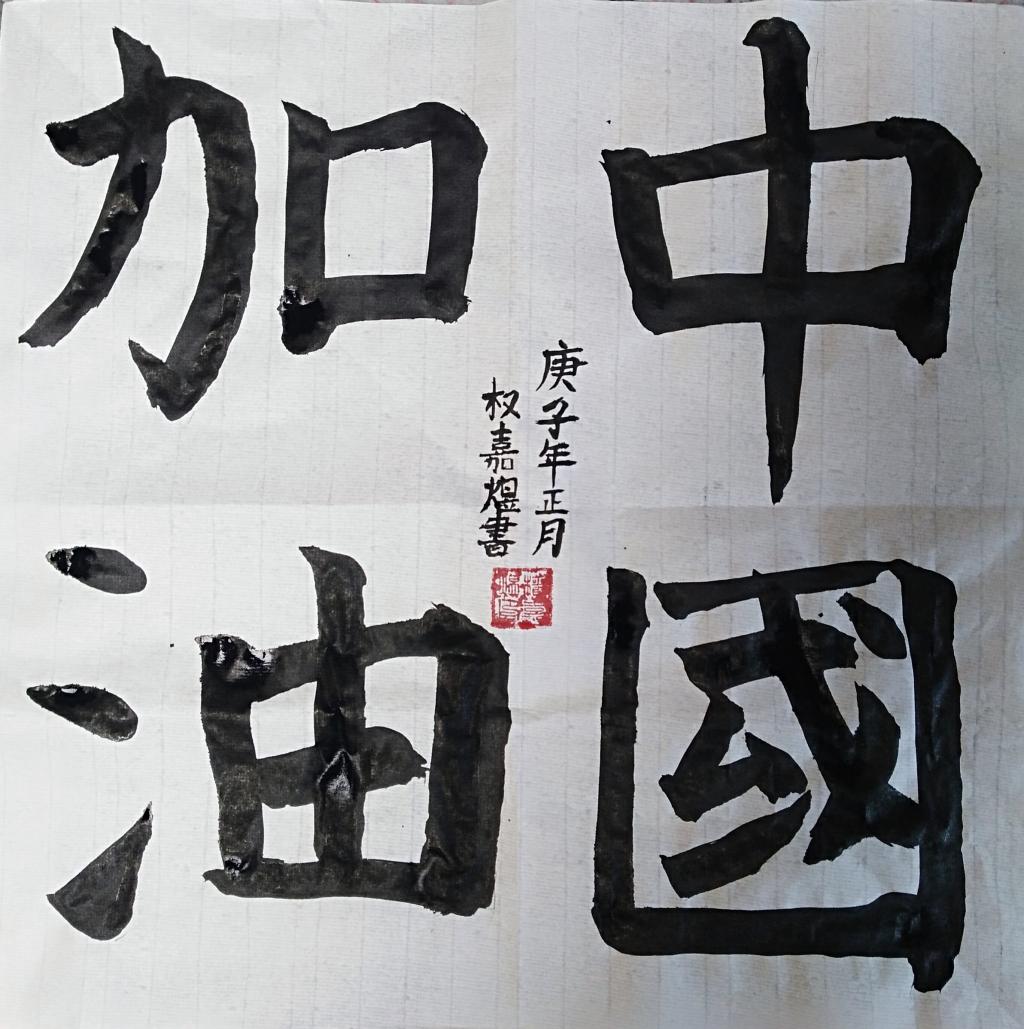 中國
加油
庚子年正月
权嘉煜書